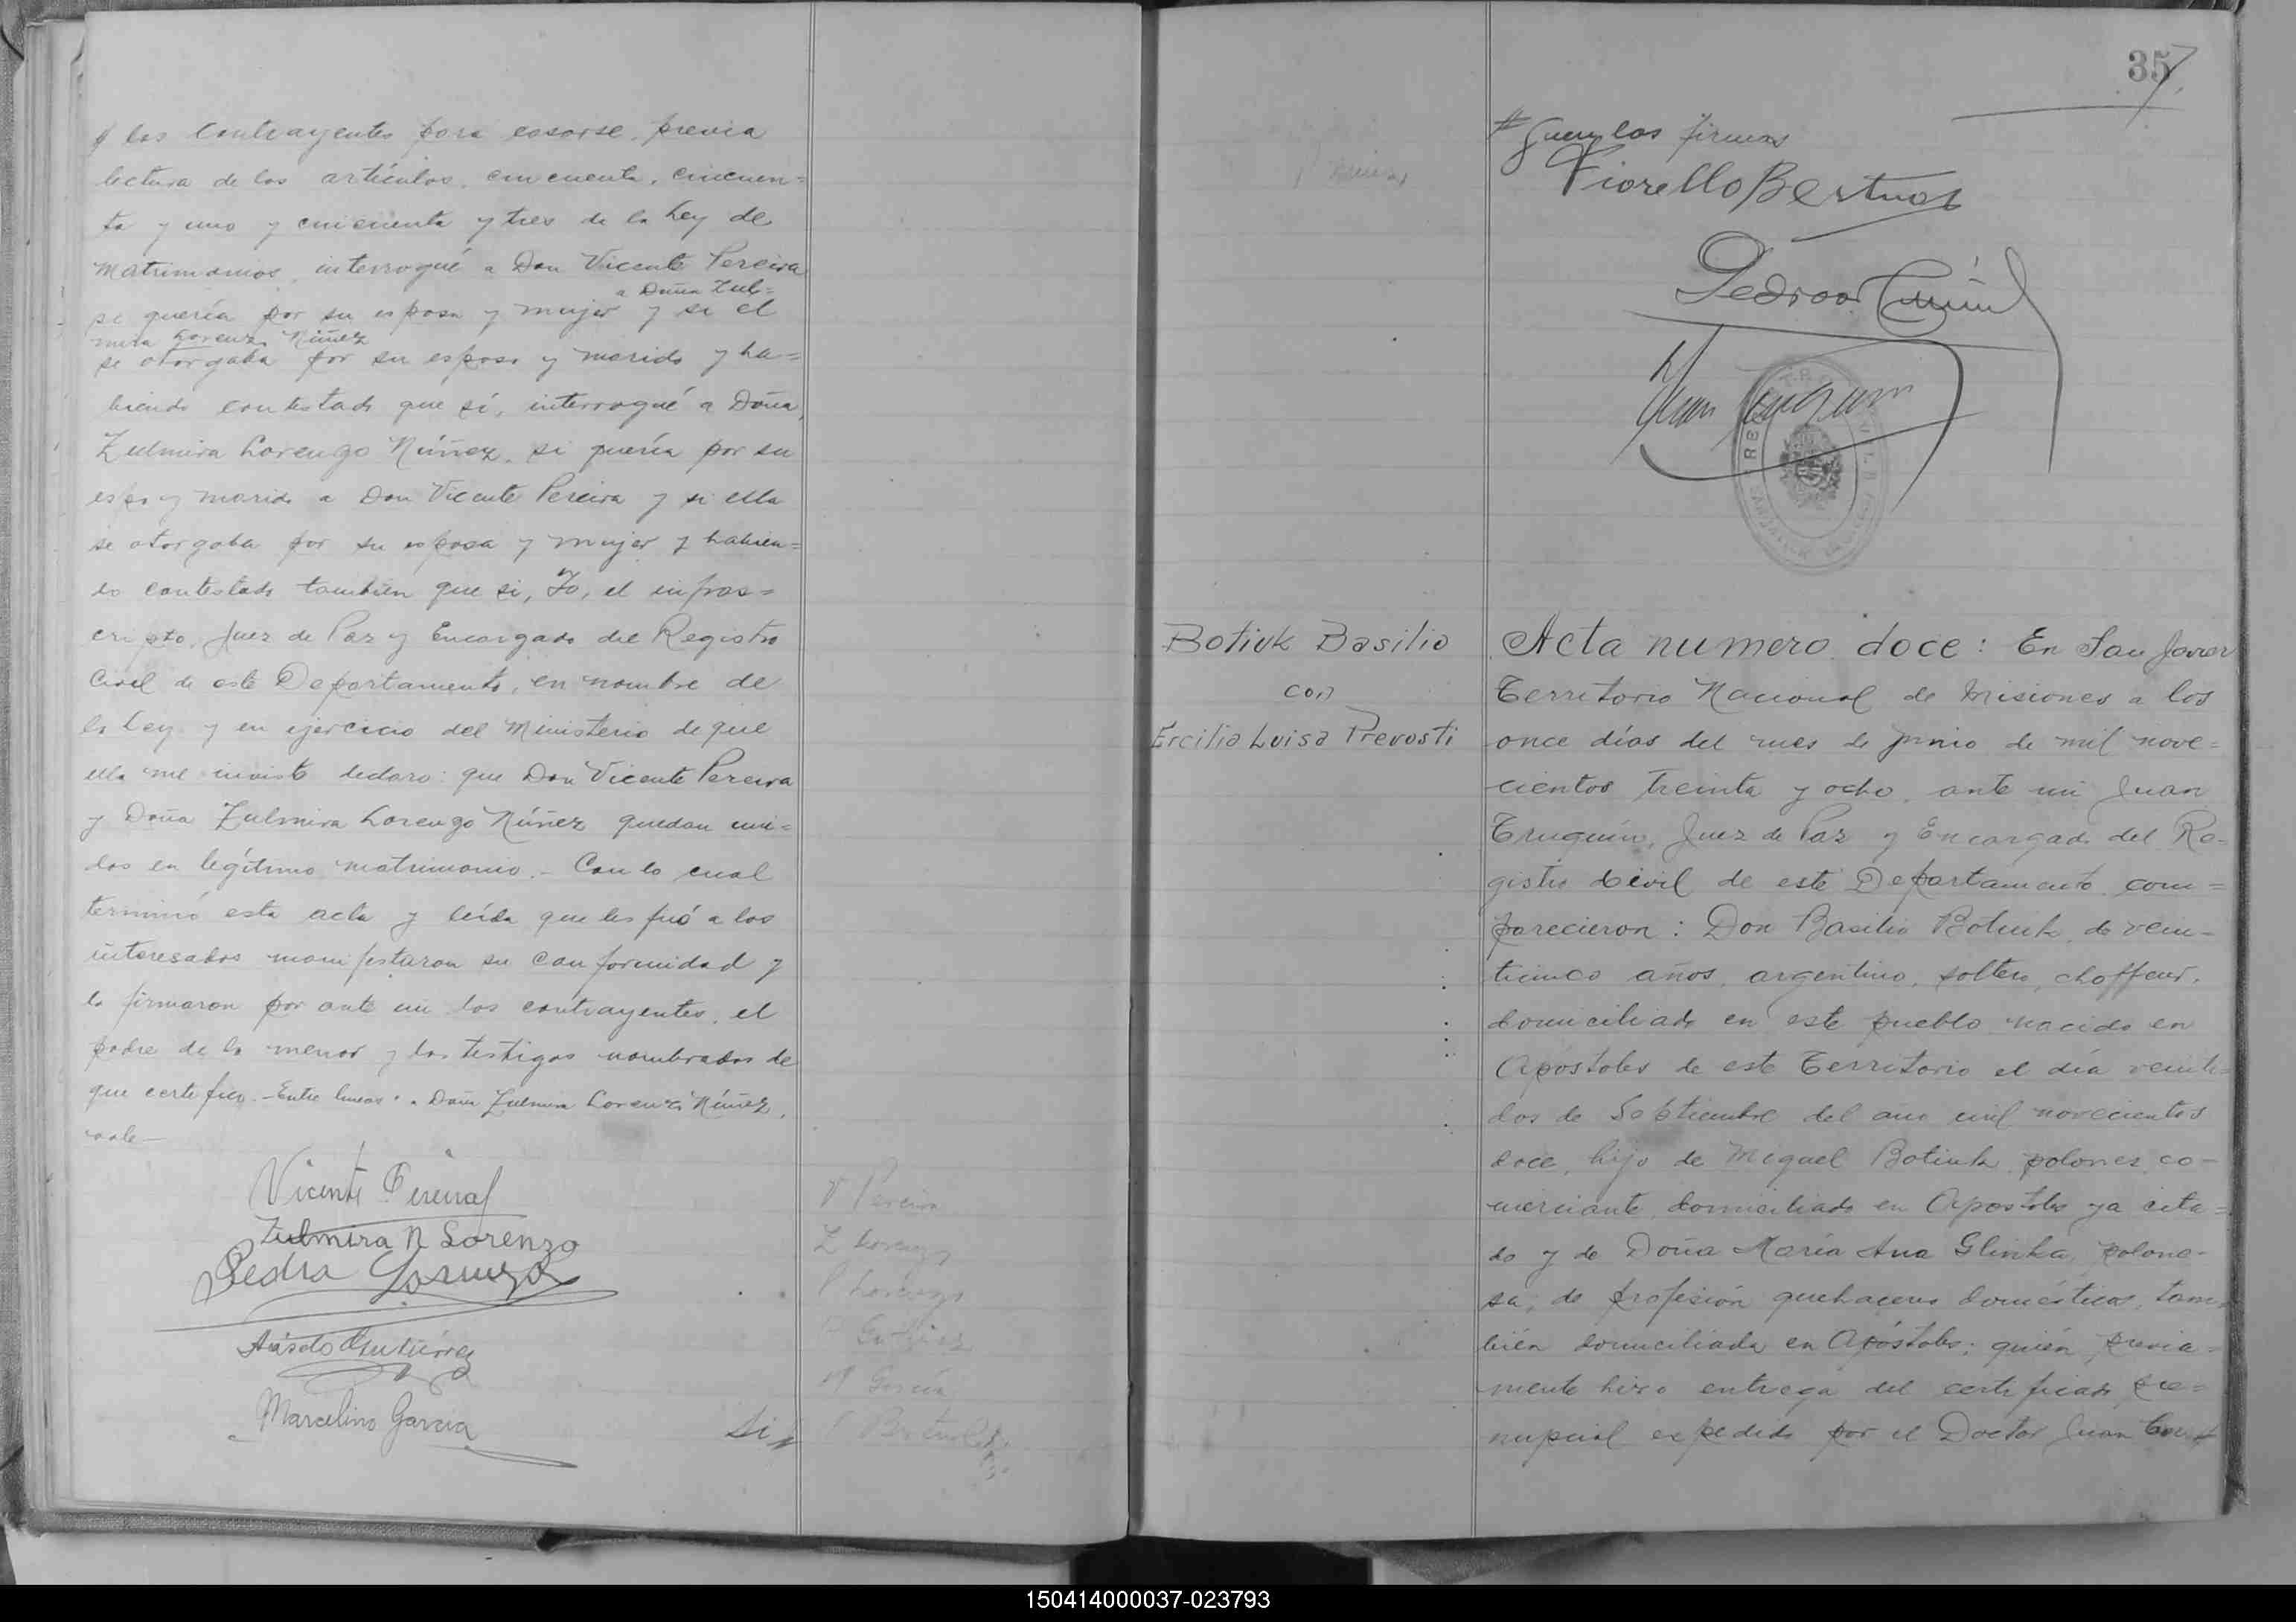 y los contrayentes para casarse, previa
lectura de los artículos, cincuenta, cincuen=
ta y uno y cincuenta y tres de la Ley de
Matrimonios, interrogué a Don Vicente Pereira
a Doña Zul=
si quería por su esposa y mujer y si el
mira Lorenzo Núñez
se otorgaba por su esposo y marido y ha=
biendo contestado que sí, interrogué a Doña
Zulmira Lorenzo Núñez, si quería por su
espo y marido a Don Vicente Pereira y si ella
se otorgaba por su esposa y mujer y habien=
do contestado también que si, Yo, el infras=
cripto, Juez de Paz y Encargado del Registro
Civil de este Departamento, en nombre de
la Ley y en ejercicio del Ministerio de que
ella me inviste declaro: que Don Vicente Pereira
y Doña Zulmira Lorenzo Núñez quedan uni=
dos en legítimo matrimonio.- Con lo cual
terminó esta acta y leída que les fué a los
interesados manifestaron su conformidad y
la firmaron por ante mi los contrayentes, el
padre de la menor y los testigos nombrados de
que certifico.- Entre lineas: a Doña Zulmira Lorenzo Núñez,
vale-
Vicente Pereira
Zulmira N Lorenzo
Pedro Lorenzo
Gutiérrez
Marcelino Garcia
Sigue
V Pereira
Z Lorenzo
P Lorenzo
M García
357
Siguen las firmas
Fiorello
Pedro
Juan
REGISTRO CIVIL
Botiuk Basilio
con
Ercilia Luisa Prevosti
Acta numero doce: En San Javier
Territorio Nacional de Misiones a los
once días del mes de Junio de mil nove=
cientos treinta y ocho, ante mi Juan
Truquín, Juez de Paz y Encargado del Re-
gistro Civil de este Departamento, com=
parecieron: Don Basilio Botiuk, de vein-
ticinco años, argentino, soltero, choffeur,
domiciliado en este pueblo, nacido en
Apóstoles de este Territorio el día veinti=
dos de Septiembre del año mil novecientos
doce, hijo de Miguel Botiuk, polones, co-
merciante, domiciliado en Apostoles ya cita=
do y de Doña María Ana Glinka, polone-
sa, de profesión quehaceres domésticos, tam-
bién domiciliada en Apóstoles; quién previa=
mente hizo entrega del certificado pre=
nupcial expedido por el Doctor Juan